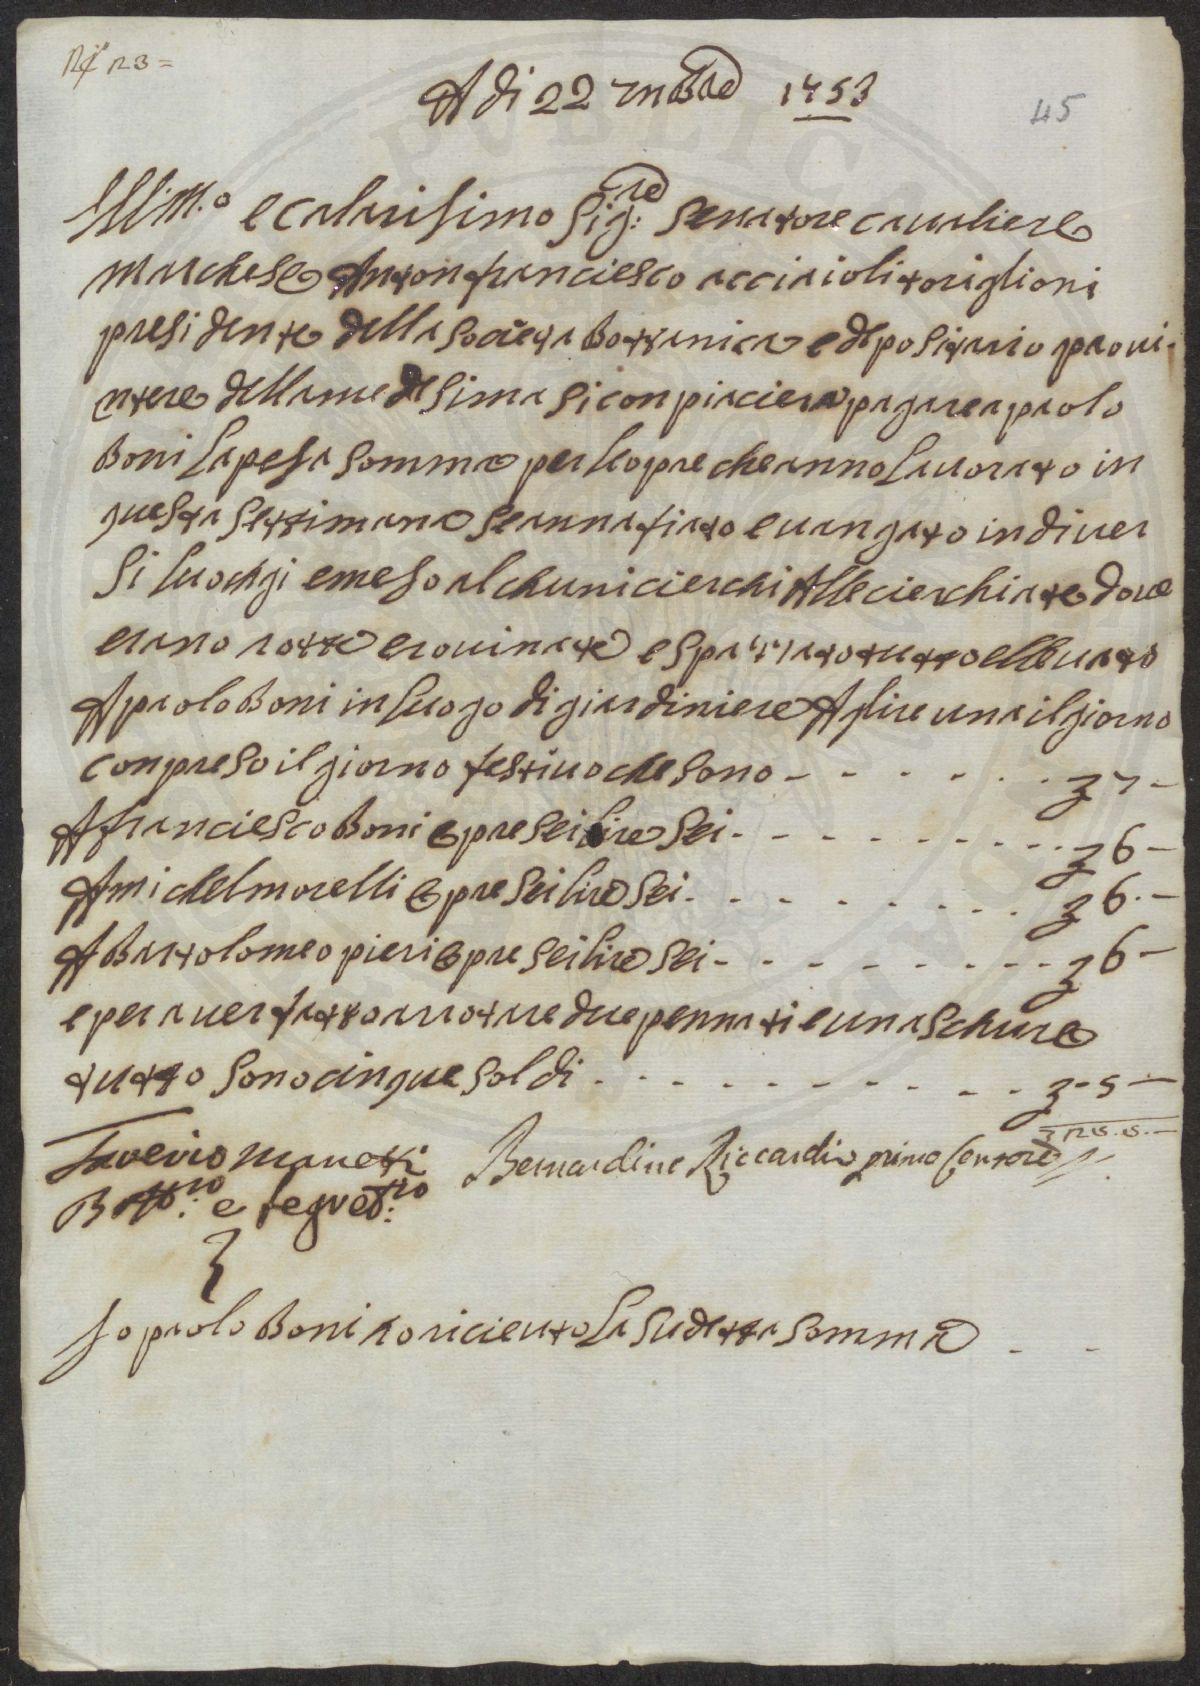 N° 123 =
A di 22 7mbre 1753
45
Ill.mo e calarisimo Sig:re Senatore cavaliere
marchese Anton franciesco acciaioli toriglioni
presidente della Società Bottanica e depositario provi
ntere della medesima si conpiacierà pagare a paolo
Boni la pesa somma per le opre che anno lavorato in
questa settimana se annafiato e vangato in diver
si luochgi e meso alchuni cierchi Alle cierchiate dove
erano rotte e rovinate e spazzato tutto e levato
A paolo Boni in luogo di giardiniere A lire una il giorno
conpreso il giorno festivo che sono - - - - - - - 7 -
A franciesco Boni opre sei lire sei - - - - - - - - 6 -
A michel morelli opre sei lire sei - - - - - - - - 6. -
A Bartolomeo pieri opre sei lire sei - - - - - - - - 6 -
e per aver fatto arrotare due pennati e una schure
tutto sono cinque soldi - - - - - - - - - - 5 -
25. 5. -
Saverio Manetti
Bott:co e segret:rio
Bernardino Riccardi primo Censore
Io paolo Boni o ricieuto la sudetta somma - -